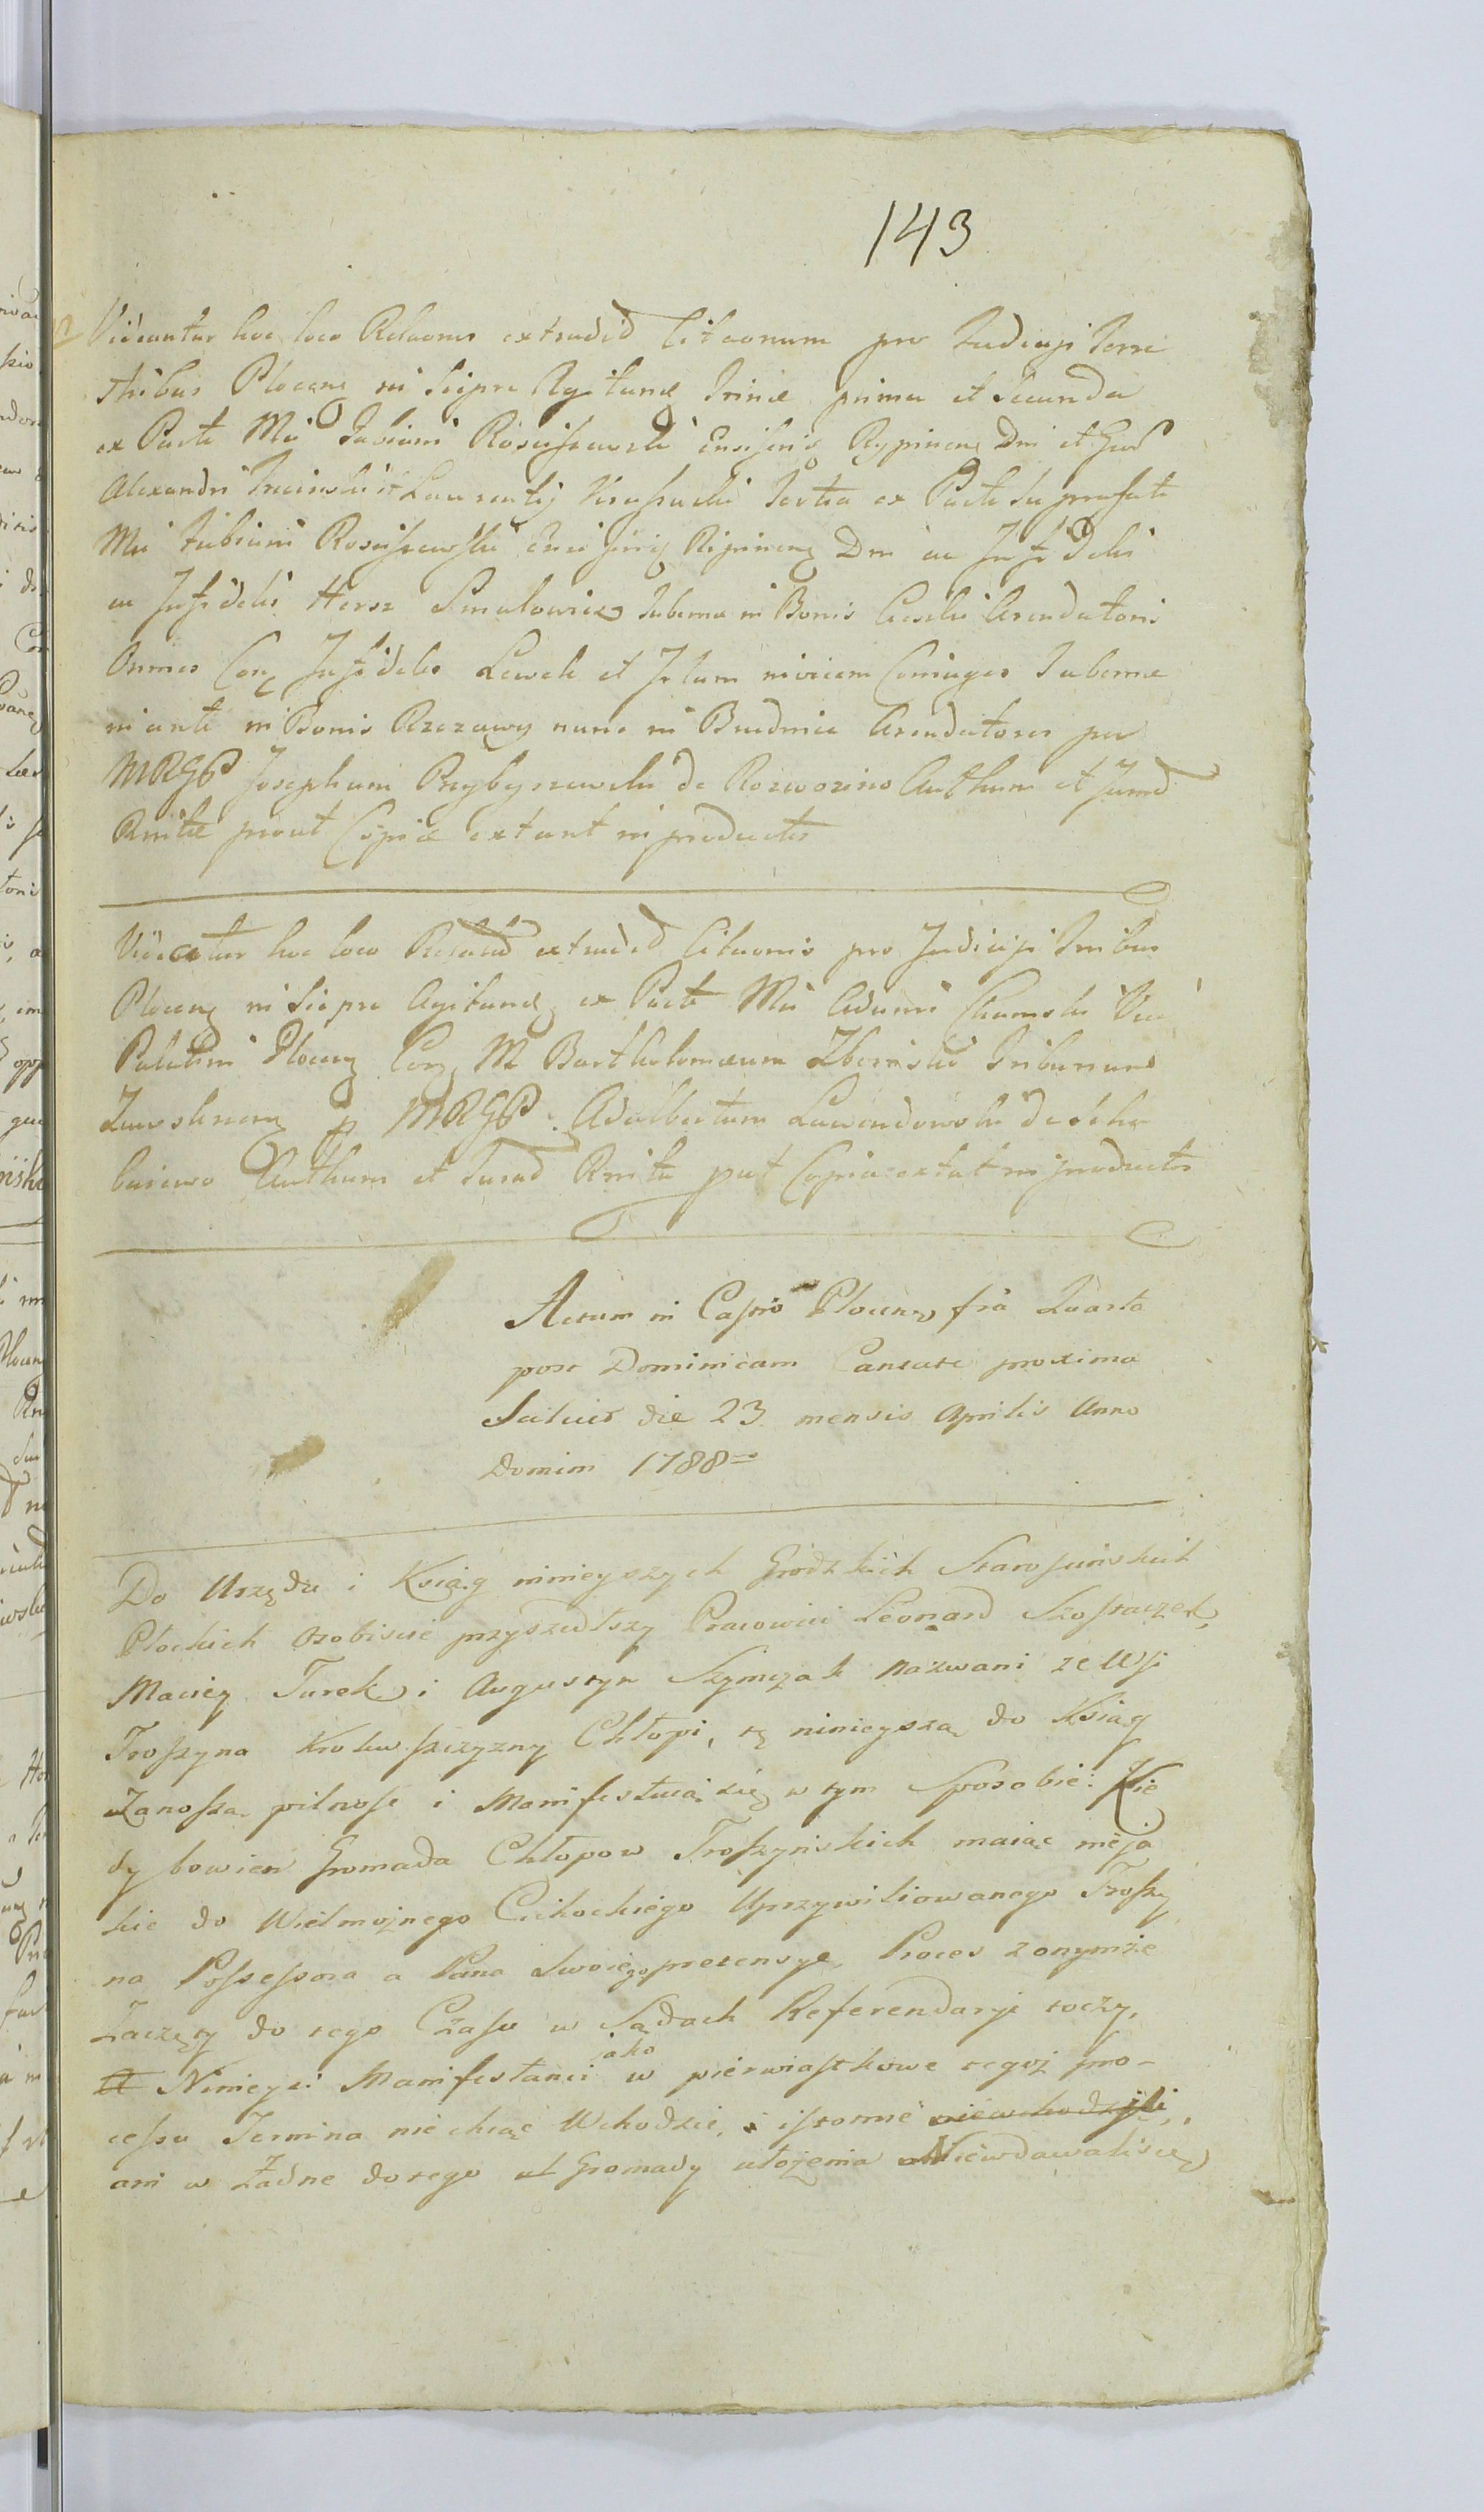 143
Videantur hoc loco Relaones extraded Citaonum pro Judicijs Terre
stribus Plocens in Sieprc Agitand Trinæ prima et Secunda
ex Parte Mci Fabiani Rosciszewski Ensiferis Rypinens Dni et Gnd
Alexandri Trcinski et Laurentij Tertia ex Parte suprafati
Mci Fabiani Rosciszewski Ensiferis Ripinens Dni ac Infidelis
ac Infidelis Hersz Smulowicz Tabernæ in Bonis Arendatoris
Omnes Con Infideles Lewek et invicem Coniuges Tabernæ
in ante in Bonis Rzezawy nunc in Brudnice Arendatores per
MRGP Josephum Przybyszewski de Rozwozino Authum et Jurad
Rnitæ prout Copiæ extant in productis
Videatur hoc loco Relatio extraded Citaonis pro Judicijs Trribus
Plocens in Sieprc Agitand ex Parte Mci Adami Chamski Vice
Palatini Plocens Con M Bartholomæum Zboinski Tribunum
Zawskrnens p MRGP Adalbertum Lewandowski de
Authum et Jurad Rnita put Copia extat in productis
Actum in Castro Plocens fria Quarta
post Dominicam Cantate proxima
Scilicet die 23 mensis Aprilis Anno
Domini 1788
Do Urzędu i Xsiąg ninieyszych Grodzkich Staroscinskich
Płockich osobiscie przyszedłszy Pracowici Leonard Szostaczek,
Maciey Turek i Augustyn Szymczak nazwani ze Wsi
Troszyna Krolewszczyzny Chłopi, tę ninieyszą do Ksiąg
Zanoszą pilnosc i Manifestuią się w tym Sposobie: Kie
dy bowiem Gromada Chłopow Troszynskich maiąc nieja
kie do Wielmożnego Cichockiego Uprzywiliowanego Troszy
na Possessora a Pana Swoiego pretensye, Proces z onymże
Zaczęty do tego Czasu w Sądach Referendaryi toczy,
Ninieysi Manifestanci jako w pierwiastkowe tegoż pro-
cessu Termina nie chcąc Wchodzic, i istotnie niewchodzili,
ani w Żadne do tego Gromady ułożenia Niewdawali się